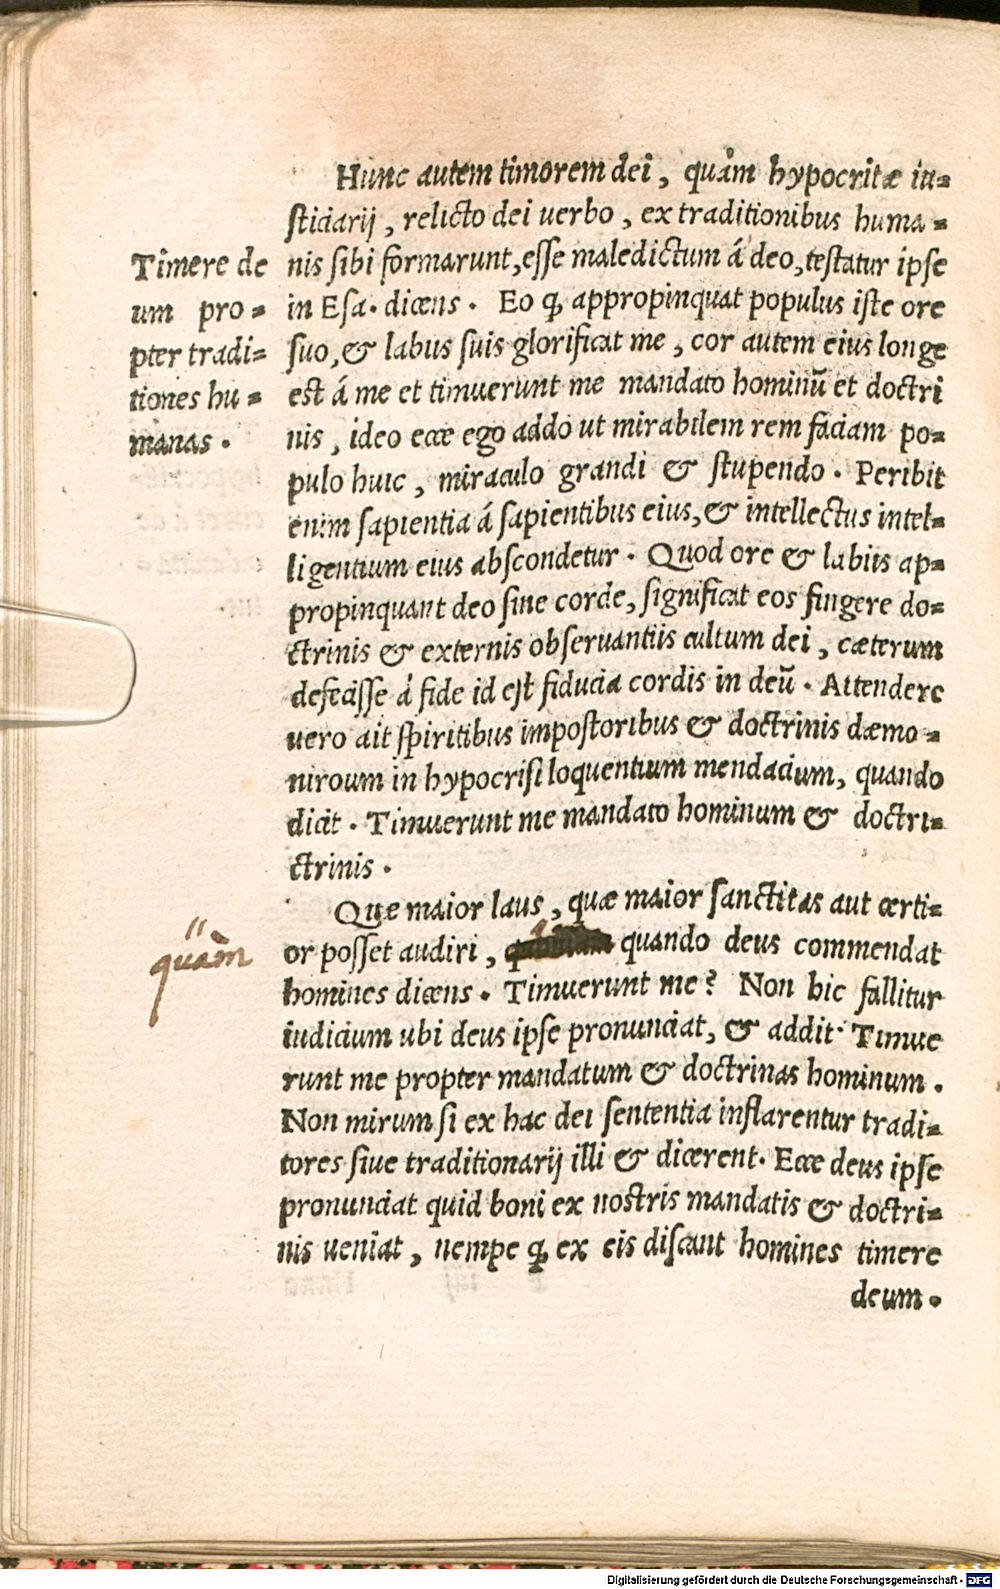 Hunc autem timorem dei, quàm hypocritæ iu-
sticiarij, relicto dei uerbo, ex traditionibus huma-
nis sibi formarunt, esse maledictum á deo, testatur ipse
in Esa. dicens. Eo ꝙ appropinquat populus iste ore
suo, & labus suis glorificat me, cor autem eius longe
est á me et timuerunt me mandato hominũ et doctri
nis, ideo ecce ego addo ut mirabilem rem faciam po-
pulo huic, miraculo grandi & stupendo. Peribit
enim sapientia á sapientibus eius, & intellectus intel-
ligentium eius abscondetur. Quod ore & labiis ap-
propinquant deo sine corde, significat eos fingere do-
ctrinis & externis obseruantiis cultum dei, cæterum
defecisse á fide id est fiducia cordis in deũ. Attendere
uero ait spiritibus impostoribus & doctrinis dæmo-
niroum in hypocrisi loquentium mendacium, quando
dicit. Timuerunt me mandato hominum & doctri-
ctrinis.
Timere de
um pro-
pter tradi-
tiones hu-
manas.
Que maior laus, quæ maior sanctitas aut certi-
or posset audiri, quando deus commendat
homines dicens. Timuerunt me? Non hic fallitur
iudicium ubi deus ipse pronunciat, & addit. Timue
runt me propter mandatum & doctrinas hominum.
Non mirum si ex hac dei sententia inflarentur tradi-
tores siue traditionarij illi & dicerent. Ecce deus ipse
pronunciat quid boni ex nostris mandatis & doctri-
nis ueniat, nempe ꝙ ex eis discant homines timere
deum.
quàm
Digitalisierung gefördert durch die Deutsche Forschungsgemeinschaft - DFG